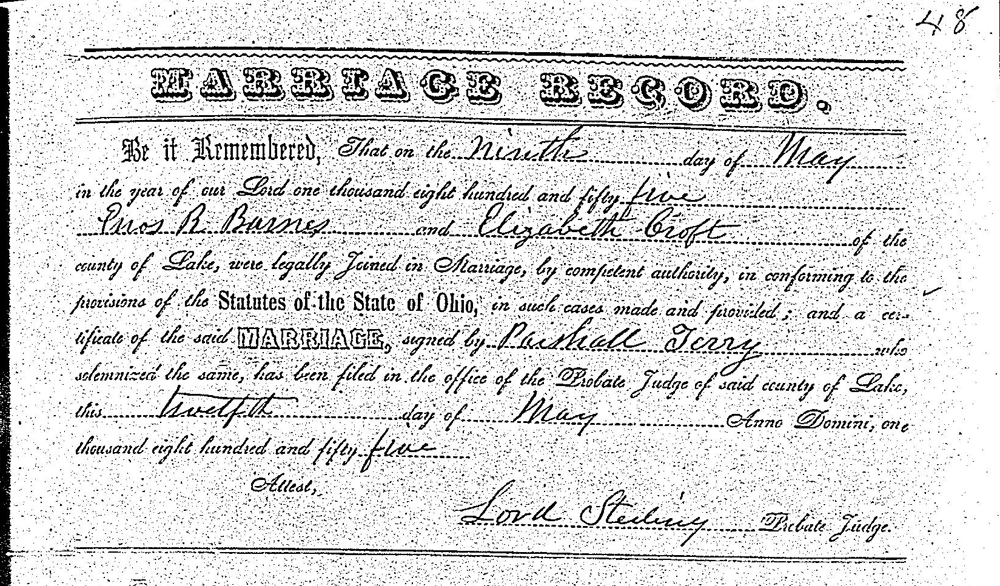 48
MARRIAGE RECORD.
Be it Remembered, That on the ninth day of May
in the year of our Lord one thousand eight hundred and fifty five
Enos R Barnes and Elizabeth Croft of the
county of Lake, were legally Joined in Marriage, by competent authority, in conforming to the
provisions of the Statutes of the State of Ohio, in such cases made and provided; and a cer-
tificate of the said MARRIAGE, signed by Parshall Terry who
solemnized the same, has been filed in the office of the Probate Judge of said county of Lake,
this twelfth day of May Anno Domini, one
thousand eight hundred and fifty five
Attest,
Lord Sterling Probate Judge.